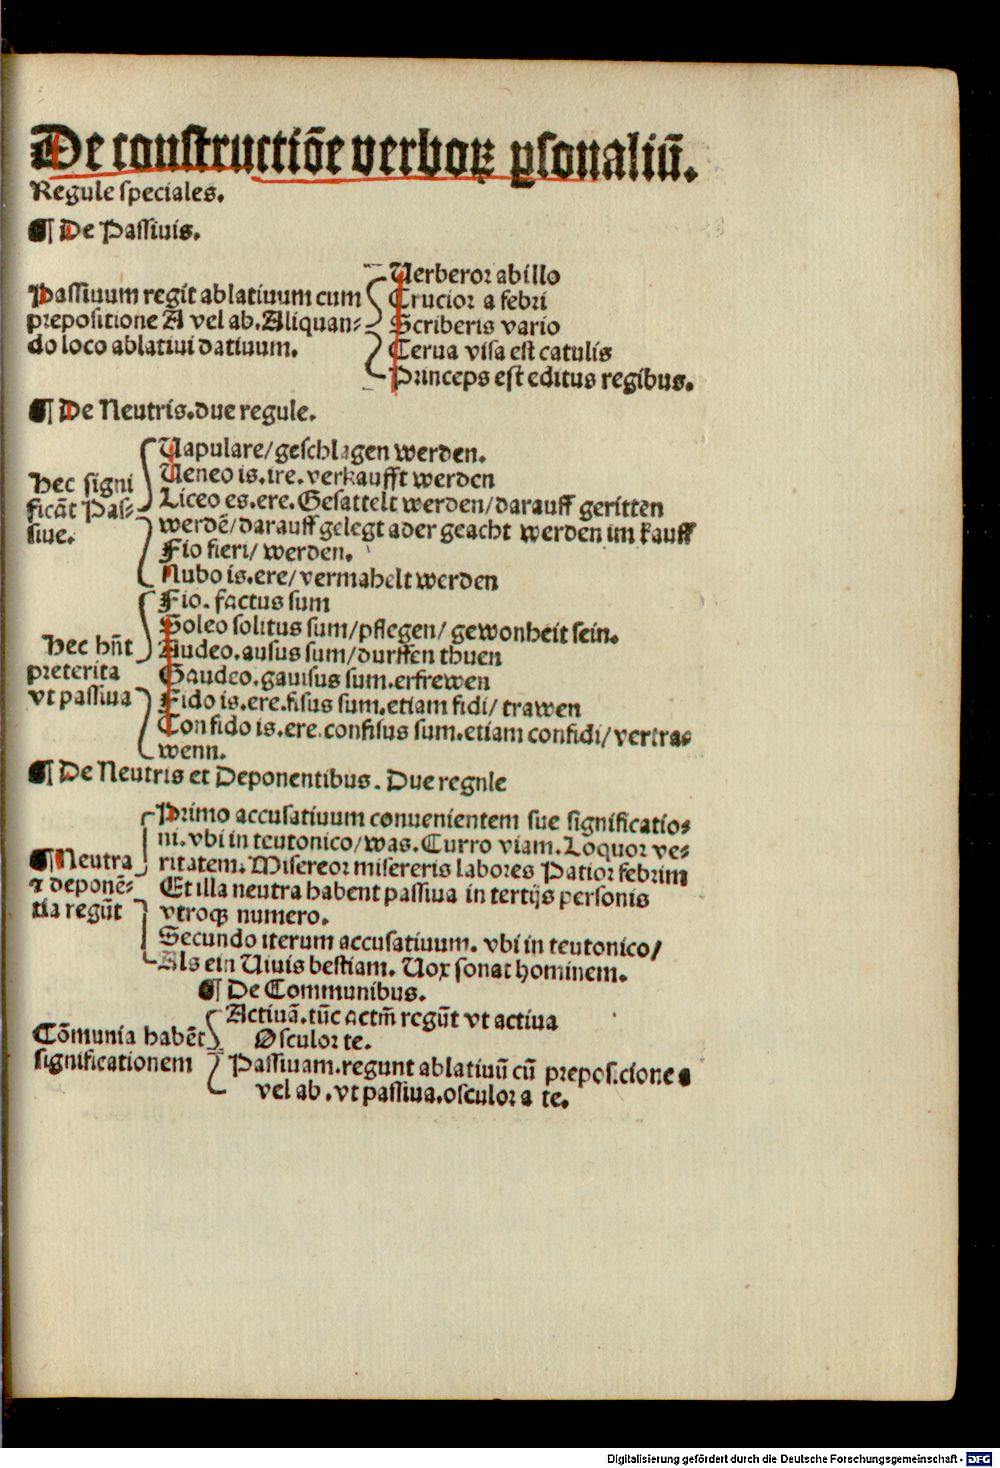 De constructiõe verboꝝ ꝑsonaliũ.
Regule speciales.
¶ De Passiuis.
Passiuum regit ablatiuum cum
prepositione A vel ab. Aliquan⸗
do loco ablatiui datiuum.
Verberor ab illo
Crucior a febri
Scriberis vario
Cerua visa est catulis
Princeps est editus regibus.
¶ De Neutris. due regule.
Hec signi
ficãt Pas⸗
siue.
Vapulare/ geschlagen werden.
Veneo is. ire. verkaufft werden
Liceo es. ere. Gesattelt werden/ darauff geritten
werdẽ/ darauff gelegt ader geacht werden im kauff
Fio fieri/ werden.
Nubo is. ere/ vermahelt werden
Hec hñt
preterita
vt passiua
Fio. factus sum
Soleo solitus sum/ pflegen/ gewonheit sein.
Audeo. ausus sum/ durffen thuen
Gaudeo. gauisus sum. erfrewen
Fido is. ere. fisus sum. etiam fidi/ trawen
Confido is. ere. confisus sum. etiam confidi/ vertra⸗
wenn.
¶ De Neutris et Deponentibus. Due regnle
¶ Neutra
⁊ deponẽ⸗
tia regũt
Primo accusatiuum conuenientem sue significatio⸗
ni. vbi in teutonico/ was. Curro viam. Loquor ve⸗
ritatem. Misereor misereris labores Patior febrim
Et illa neutra habent passiua in tertijs personis
vtroqꝫ numero.
Secundo iterum accusatiuum. vbi in teutonico/
Als ein Viuis bestiam. Vox sonat hominem.
¶ De Communibus.
Cõmunia habẽt
significationem
Actiuã. tũc actm̃ regũt vt actiua
Osculor te.
Passiuam. regunt ablatiuũ cũ preposicione a
vel ab. vt passiua. osculor a te.
Digitalisierung gefördert durch die Deutsche Forschungsgemeinschaft - DFG